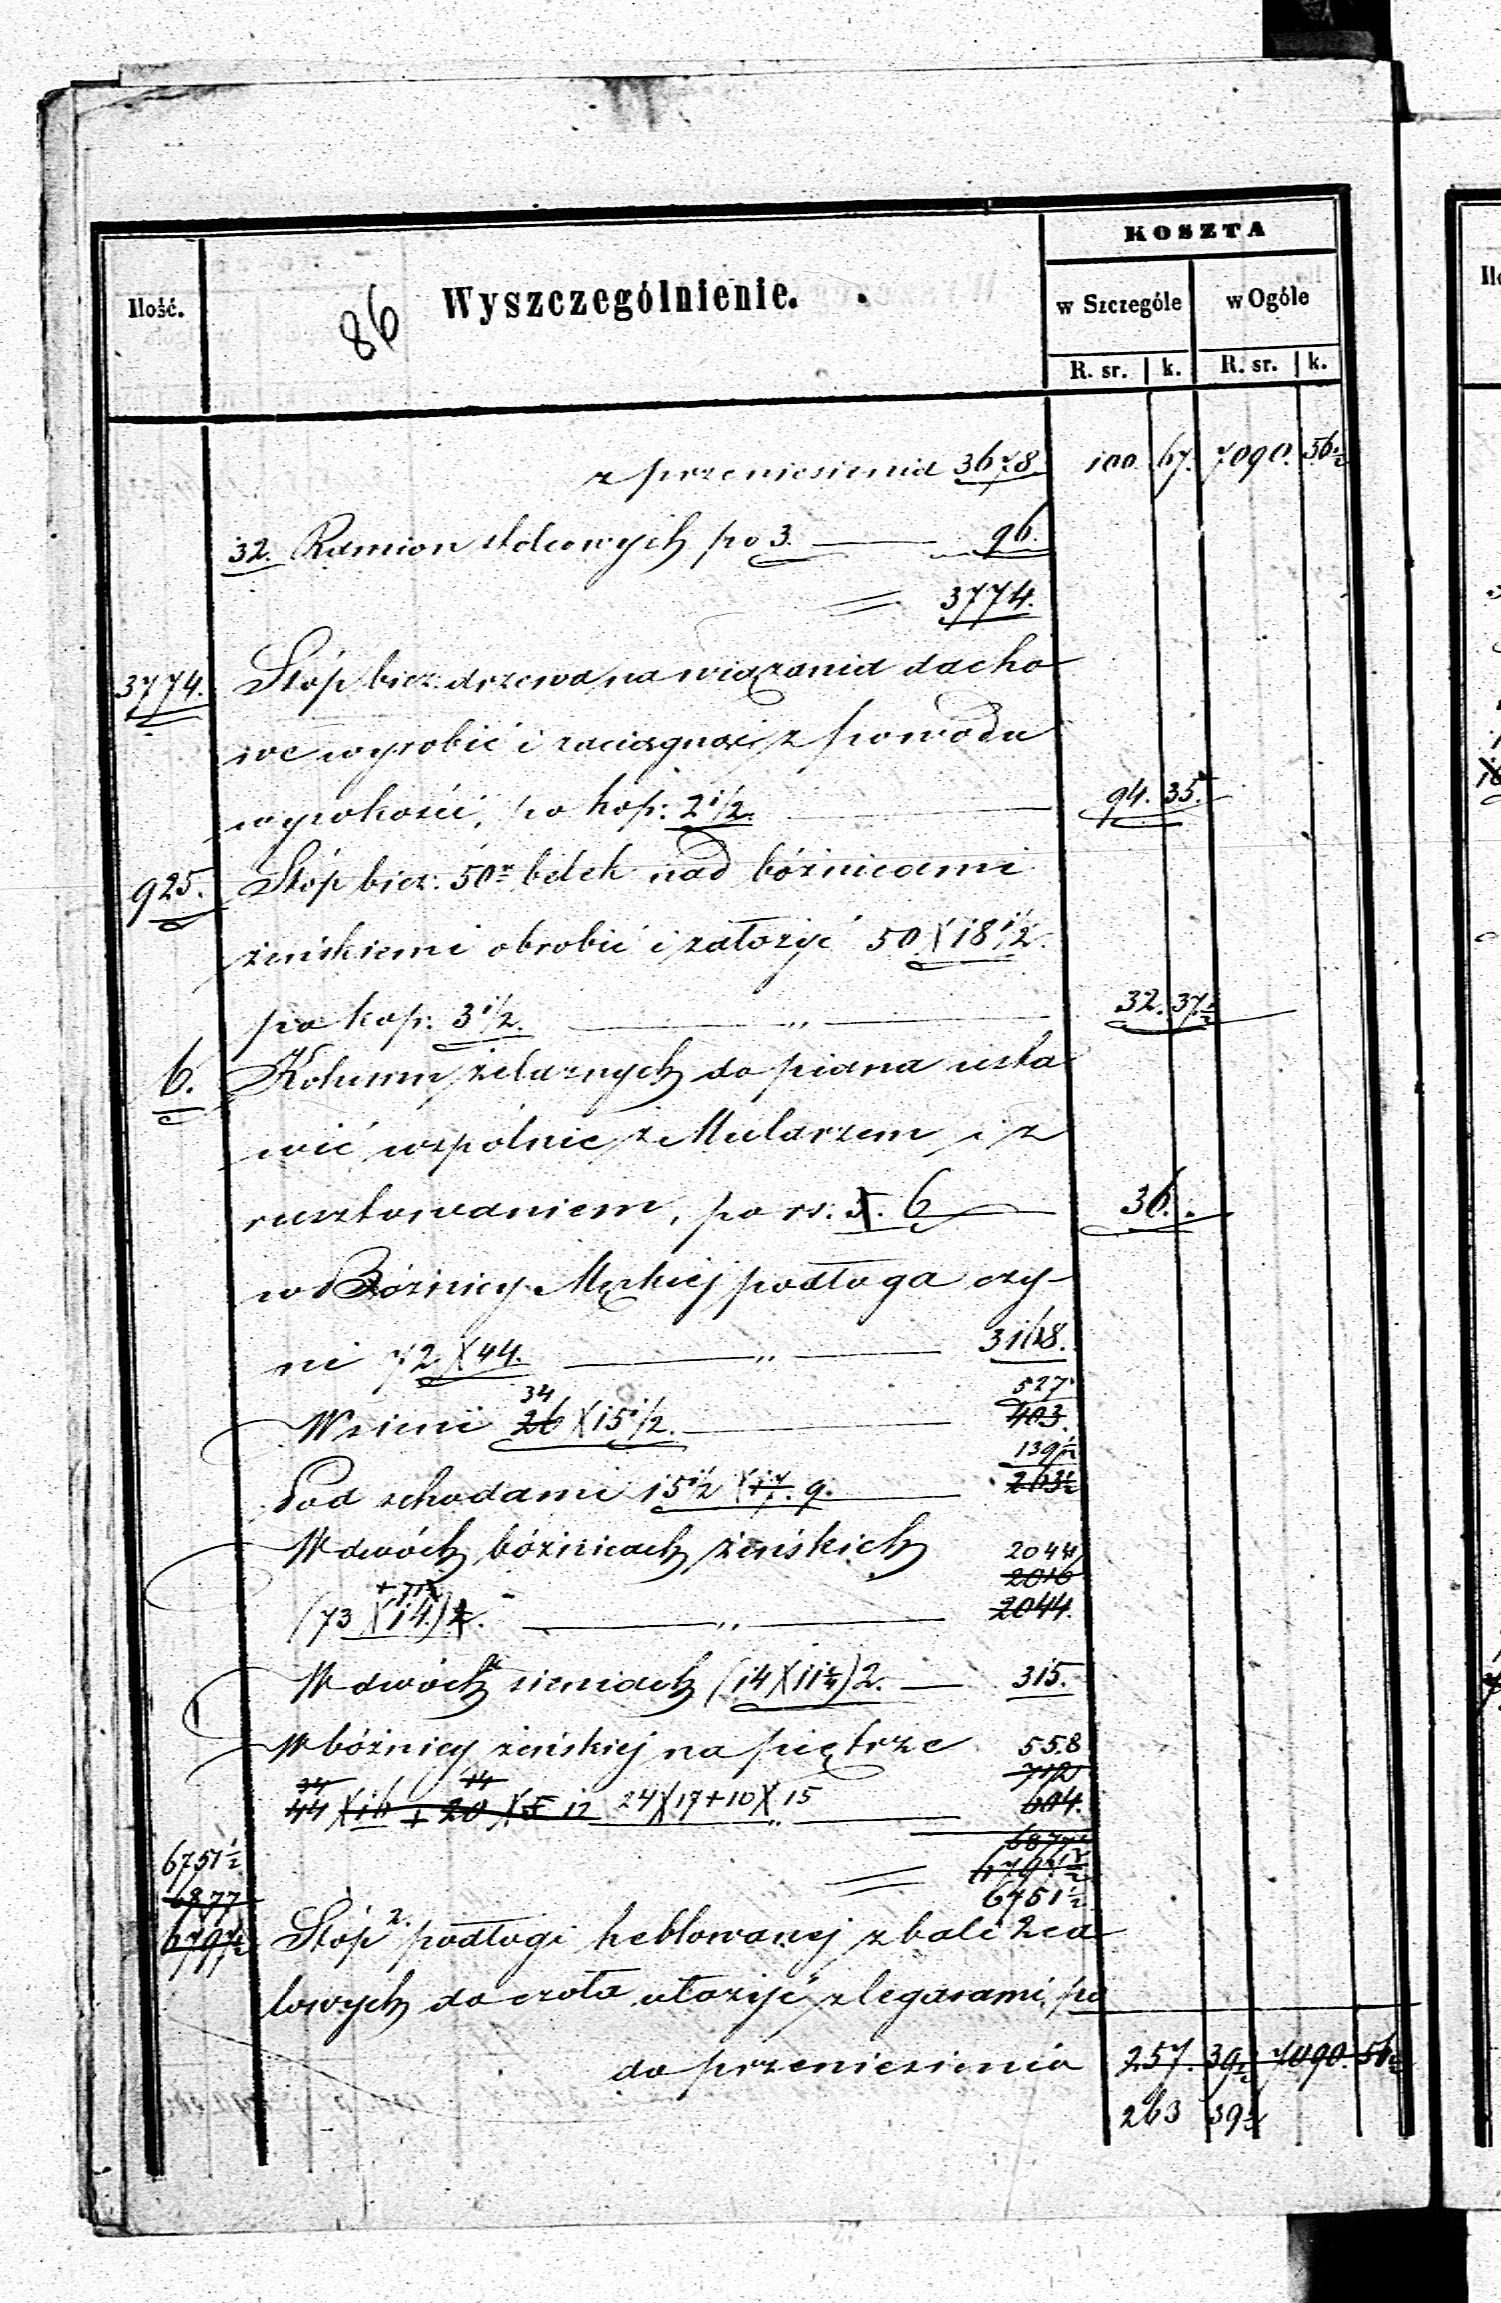 KOSZTA
Ilość.
86 Wyszczególnienie.
w Szczególe w Ogóle
R. sr. k. R. sr. k.
z przeniesienia 3678 100. 67. 7090. 56½
32. Ramion stolcowych po 3. — 96.
= 3774.
3774. Stóp bież: drzewa na wiązania dacho
we wyrobić i zaciągnąć z powodu
wysokości, po kop: 2½. 94. 35.
925. Stóp bież: 50 belek nad bóżnicami
żeńskiemi obrobić i założyć 50 X 18½.
po kop: 3½. — „ — 32. 37½
6. Kolumn żelaznych do piona usta
wić wspólnie z Mularzem i z
rusztowaniem, po rs. 5. 6 — 36. .
w Bóżnicy Męzkiej podłoga czy-
ni 72 X 44. — „ — 3168.
34 527
W sieni 26 X 15½. — 403.
139½
Pod schodami 15½ X 17. 9. — 263½
W dwóch bóżnicach żeńskich 2044
2016
(73 X 14.) 2. — „ — 2044.
W dwóch sieniach (14 X 11¼) 2. — 315.
W bóżnicy żeńskiej na piętrze 558
34 14 712
44 X 16 + 20 X 5 12 24 X 17 + 10 X 15 „ — 604.
6751½ 6877
6877 = 6797½
6797½ 6751½
Stóp 2. podłogi heblowanej z bali 2 ca
lowych do czoła ułożyć z legarami, po
do przeniesienia 257. 39½ 7090. 56½
263 39½